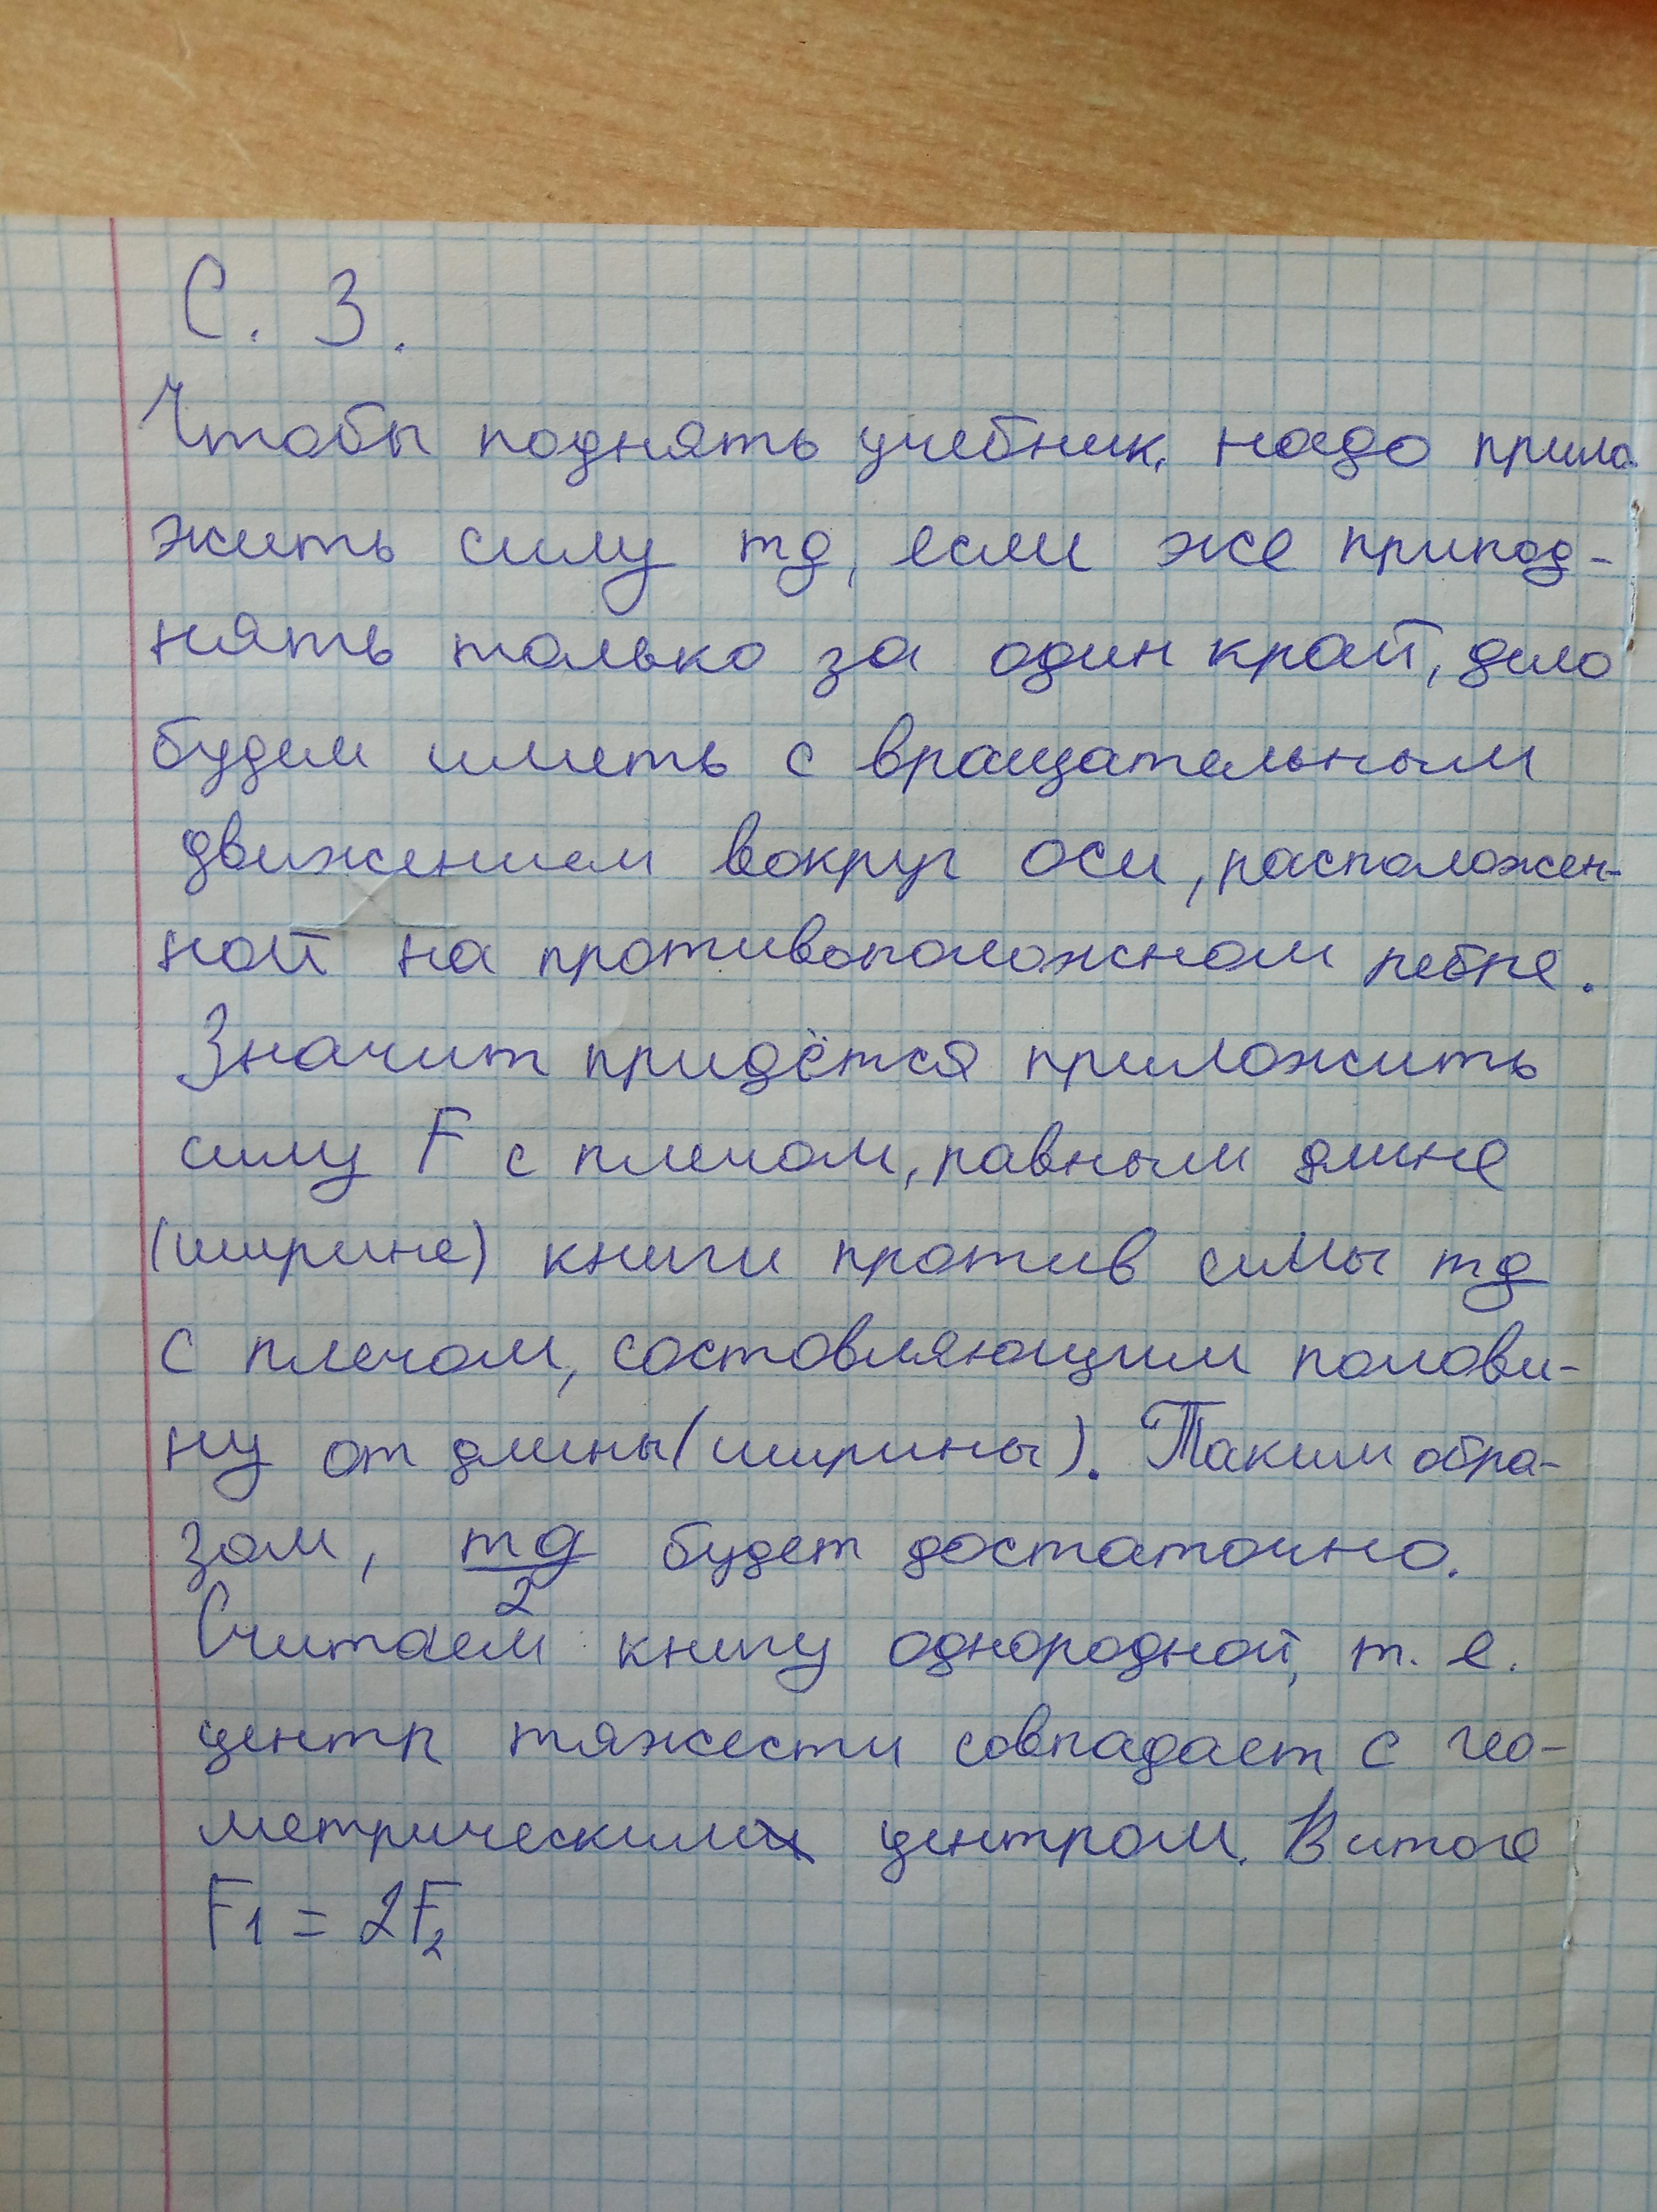 С. 3.
Чтобы поднять учебник, надо прило
жить силу mg, если же припод-
нять только за один край, дело
будем иметь с вращательным
движением вокруг оси, расположен-
ной на противоположном ребре.
Значит придётся приложить
силу F с плечом, равным длине
(ширине) книги против силы mg
с плечом, состовляющим полови-
ну от длины (ширины). Таким обра-
зом, mg/2 будет достаточно.
Считаем книгу однородной, т. е.
центр тяжести совпадает с гео-
метрическим центром. В итоге
F1 = 2F2